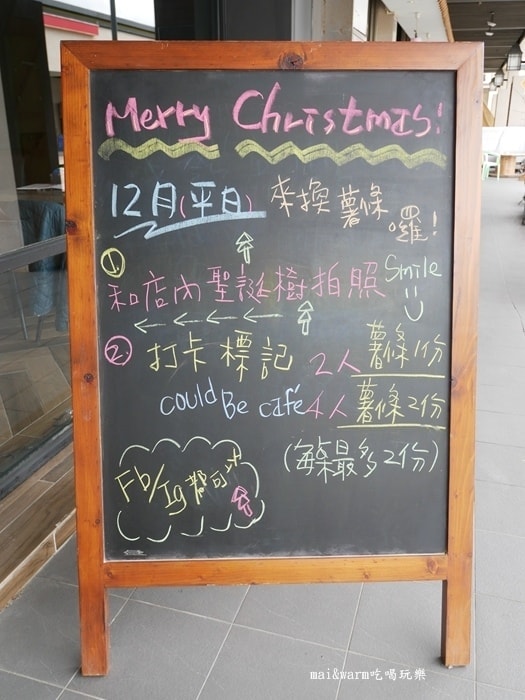 Merry Christmas!
12月(平日) 來換薯條囉!
1. 和店內聖誕樹拍照 Smile
2. 打卡標記 2人 薯條1份
could Be café 4人 薯條2份
(每桌最多2份)
Fb/Ig都可
mai&warm吃喝玩樂